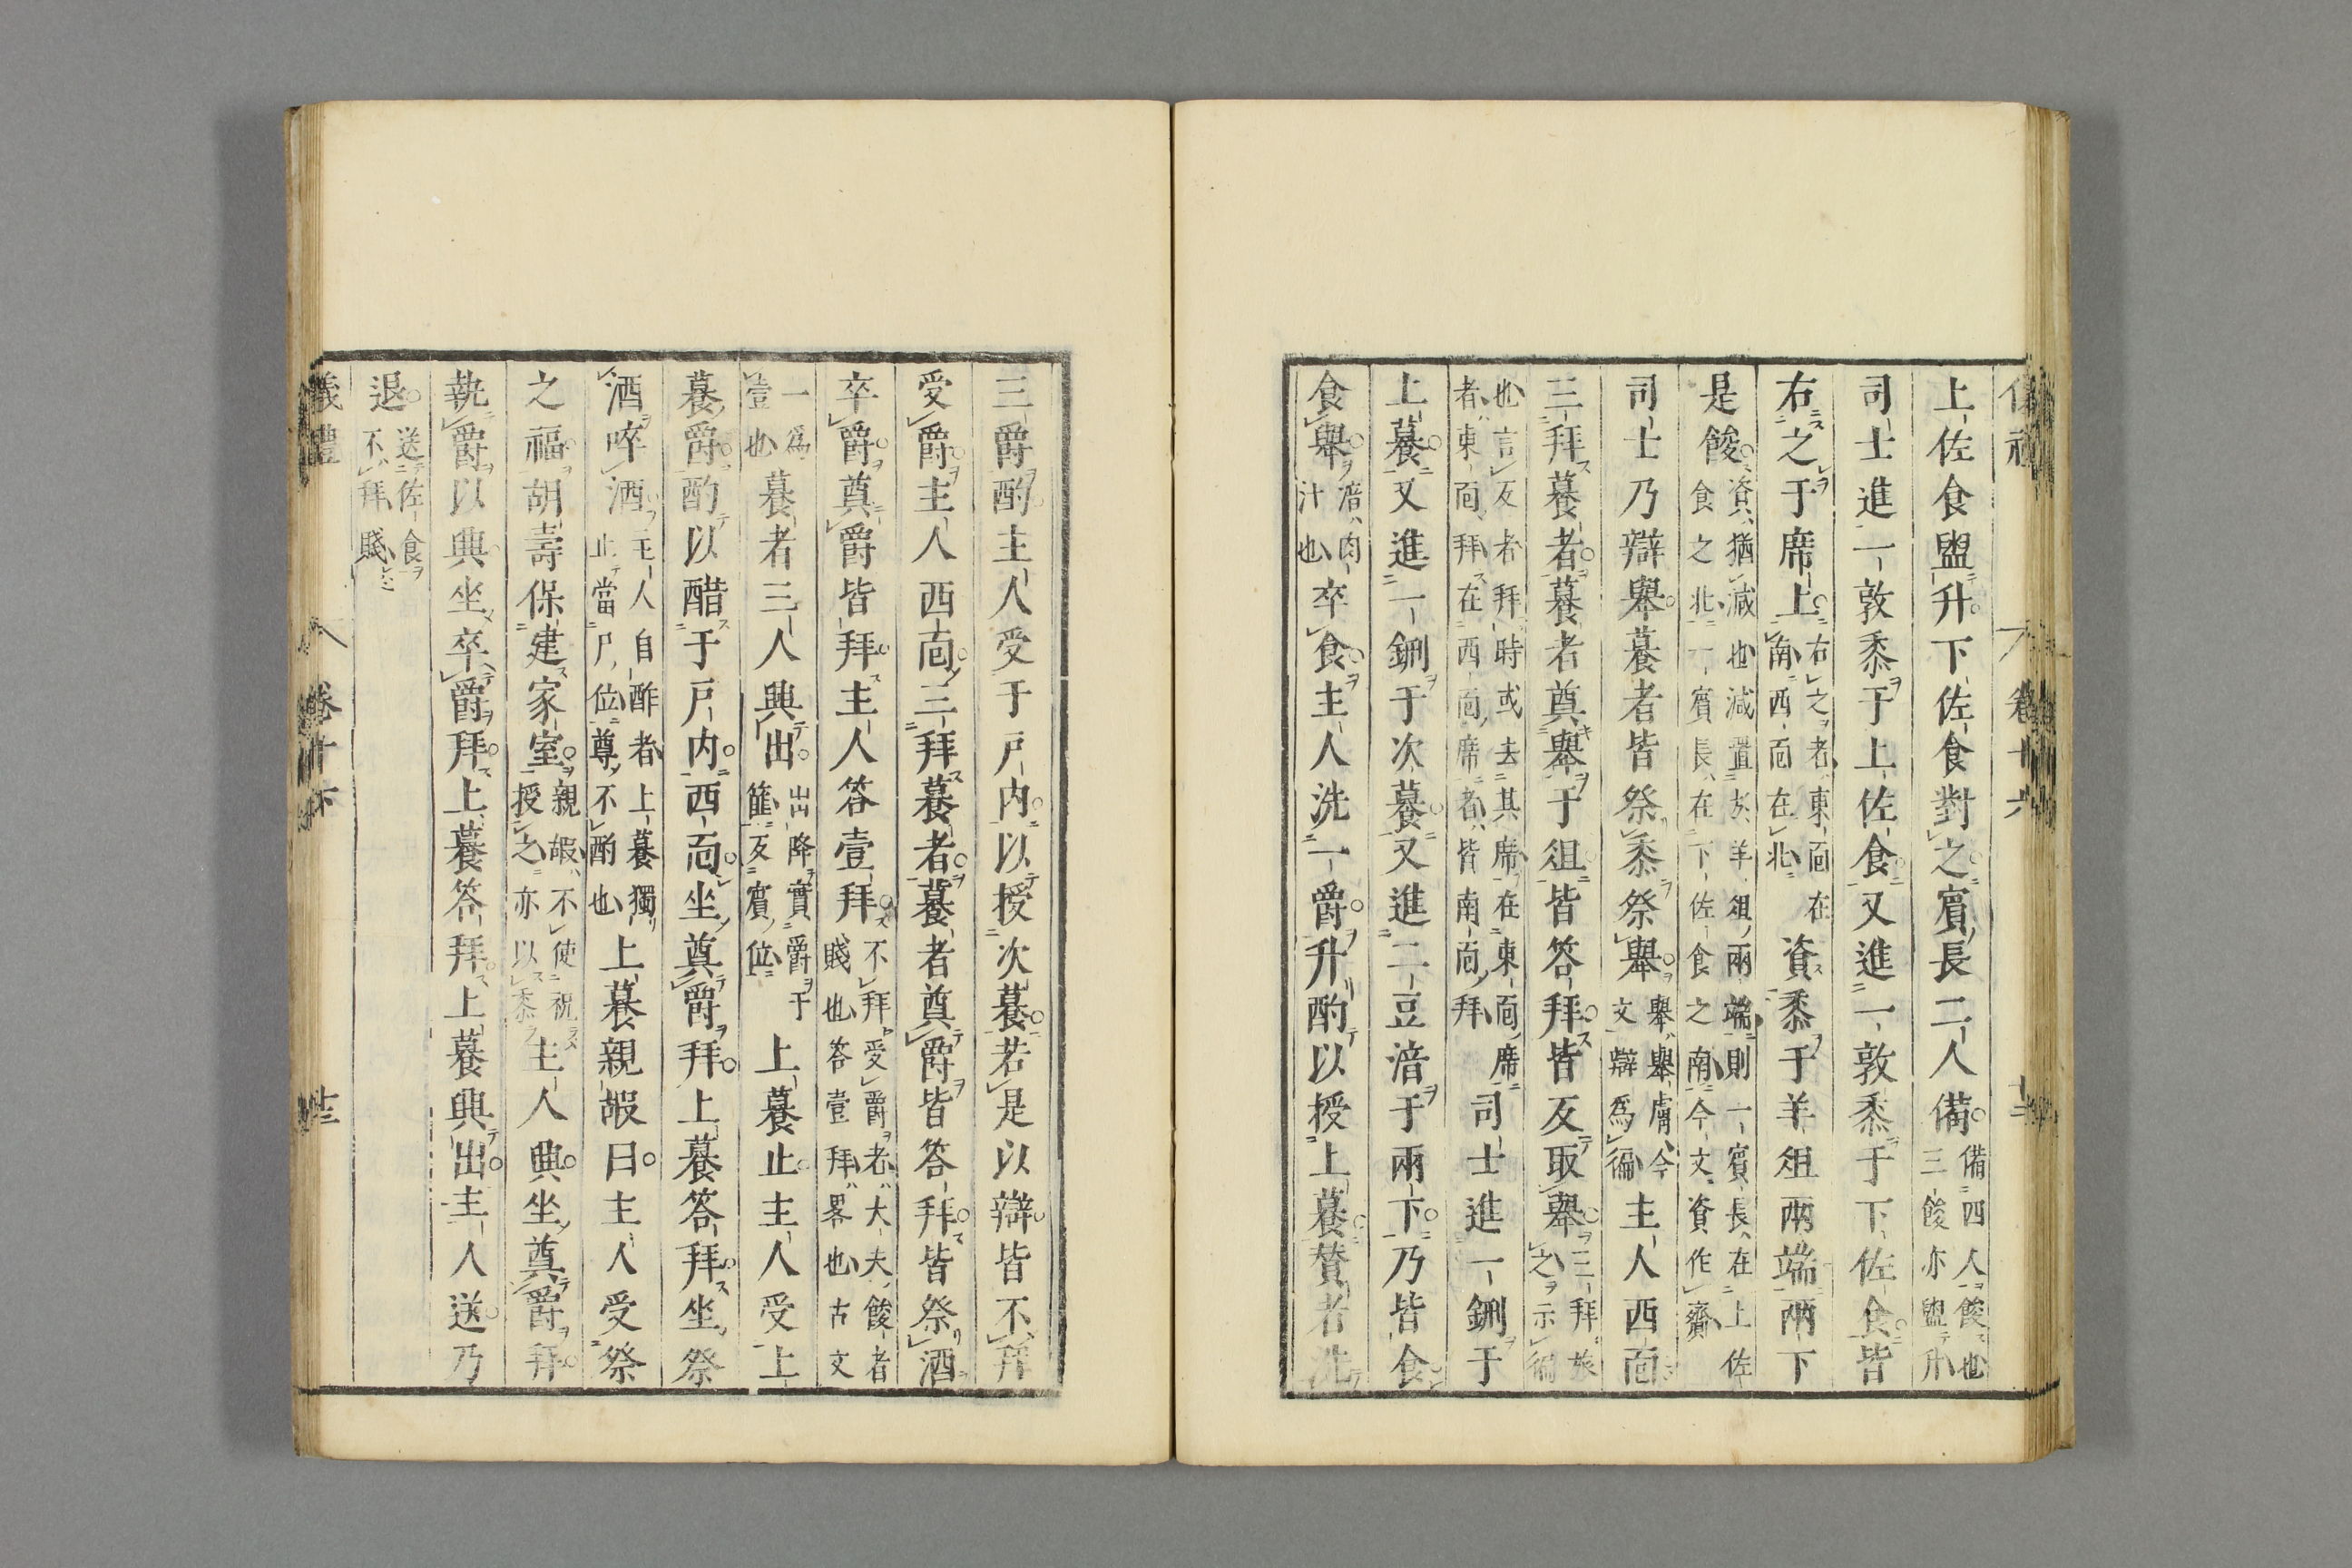 卷十六
上佐食盥升下佐食對之賓長二人備備四人餕也三餕亦盥升
司士進一敦黍于上佐食又進一敦黍于下佐食皆
右之于席上右之者東靣在南西靣在北資黍于羊俎兩端兩下
是餕資猶減也減置於羊俎兩端則一賓長在上佐食之北一賓長在下佐食之南今文資作齎
司士乃辯舉䬸者皆祭黍祭舉舉舉膚今文辯爲徧主人西靣
三拜䬸者䬸者奠舉于俎皆答拜皆反取舉三拜旅之示徧
也言反者拜時或去其席在東靣席者東靣拜在西靣席者皆南靣拜司士進一鉶于
上䬸又進一鉶于次䬸又進二豆湆于兩下乃皆食
食舉湆肉汁也卒食主人洗一爵升酌以授上䬸賛者洗
三爵酌主人受于戶内以授次䬸若是以辯皆不拜
受爵主人西靣三拜䬸者䬸者奠爵皆答拜皆祭酒
卒爵奠爵皆拜主人答壹拜不拜受爵者大夫餕者賤也答壹拜畧也古文
一爲壹也䬸者三人興出出降實爵于篚反賓位上䬸止主人受上
䬸爵酌以醋于戶内西靣坐奠爵拜上䬸答拜坐祭
酒啐酒主人自酢者上䬸獨止當尸位尊不酌也上䬸親嘏曰主人受祭
之福胡壽保建家室親嘏不使祝授之亦以黍主人興坐奠爵拜
執爵以興坐卒爵拜上䬸答拜上䬸興出主人送乃
退送佐食不拜賤
儀禮　卷十六　十三